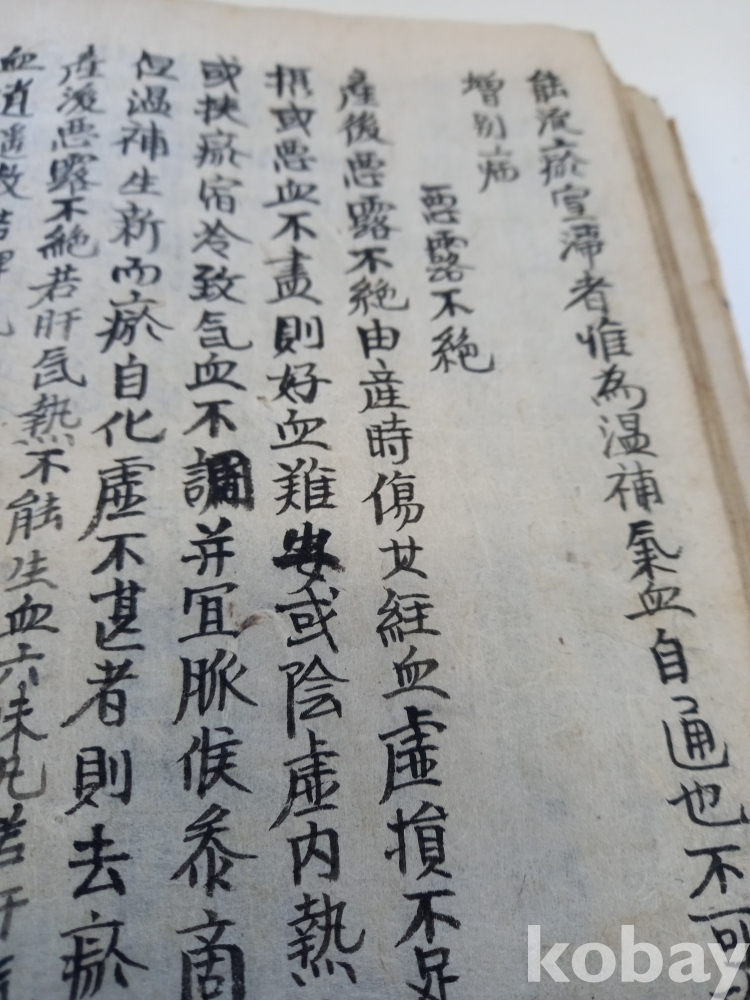 能流瘀宣滯者惟為温補氣血自通也不可
增别病
悪露不絶
產後悪露不絶由産時傷女経血虛損不足
損或悪血不盡則好血難安或陰虛内熱
或挟瘀宿冷致気血不調并冝脈候参
但温補生新而瘀自化虛不甚者則去瘀
產後悪露不絶若肝気熱不能生血六味丸若肝
血逍遥散若脾
kobay